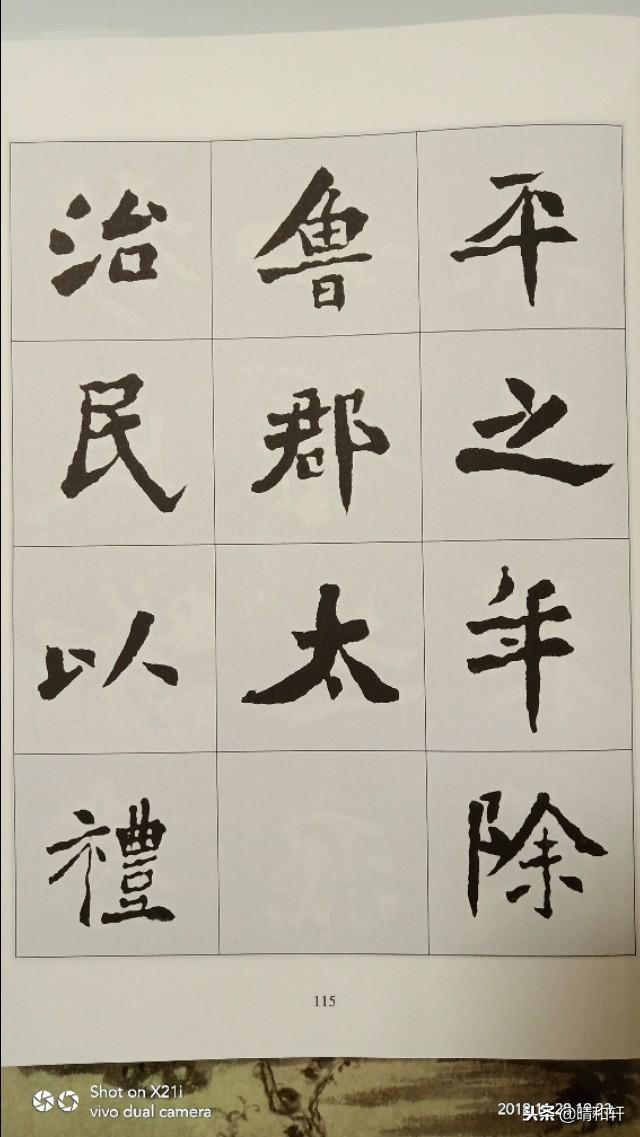 平之年除
魯郡太
治民以禮
115
Shot on X21i
vivo dual camera
头条@晴和轩